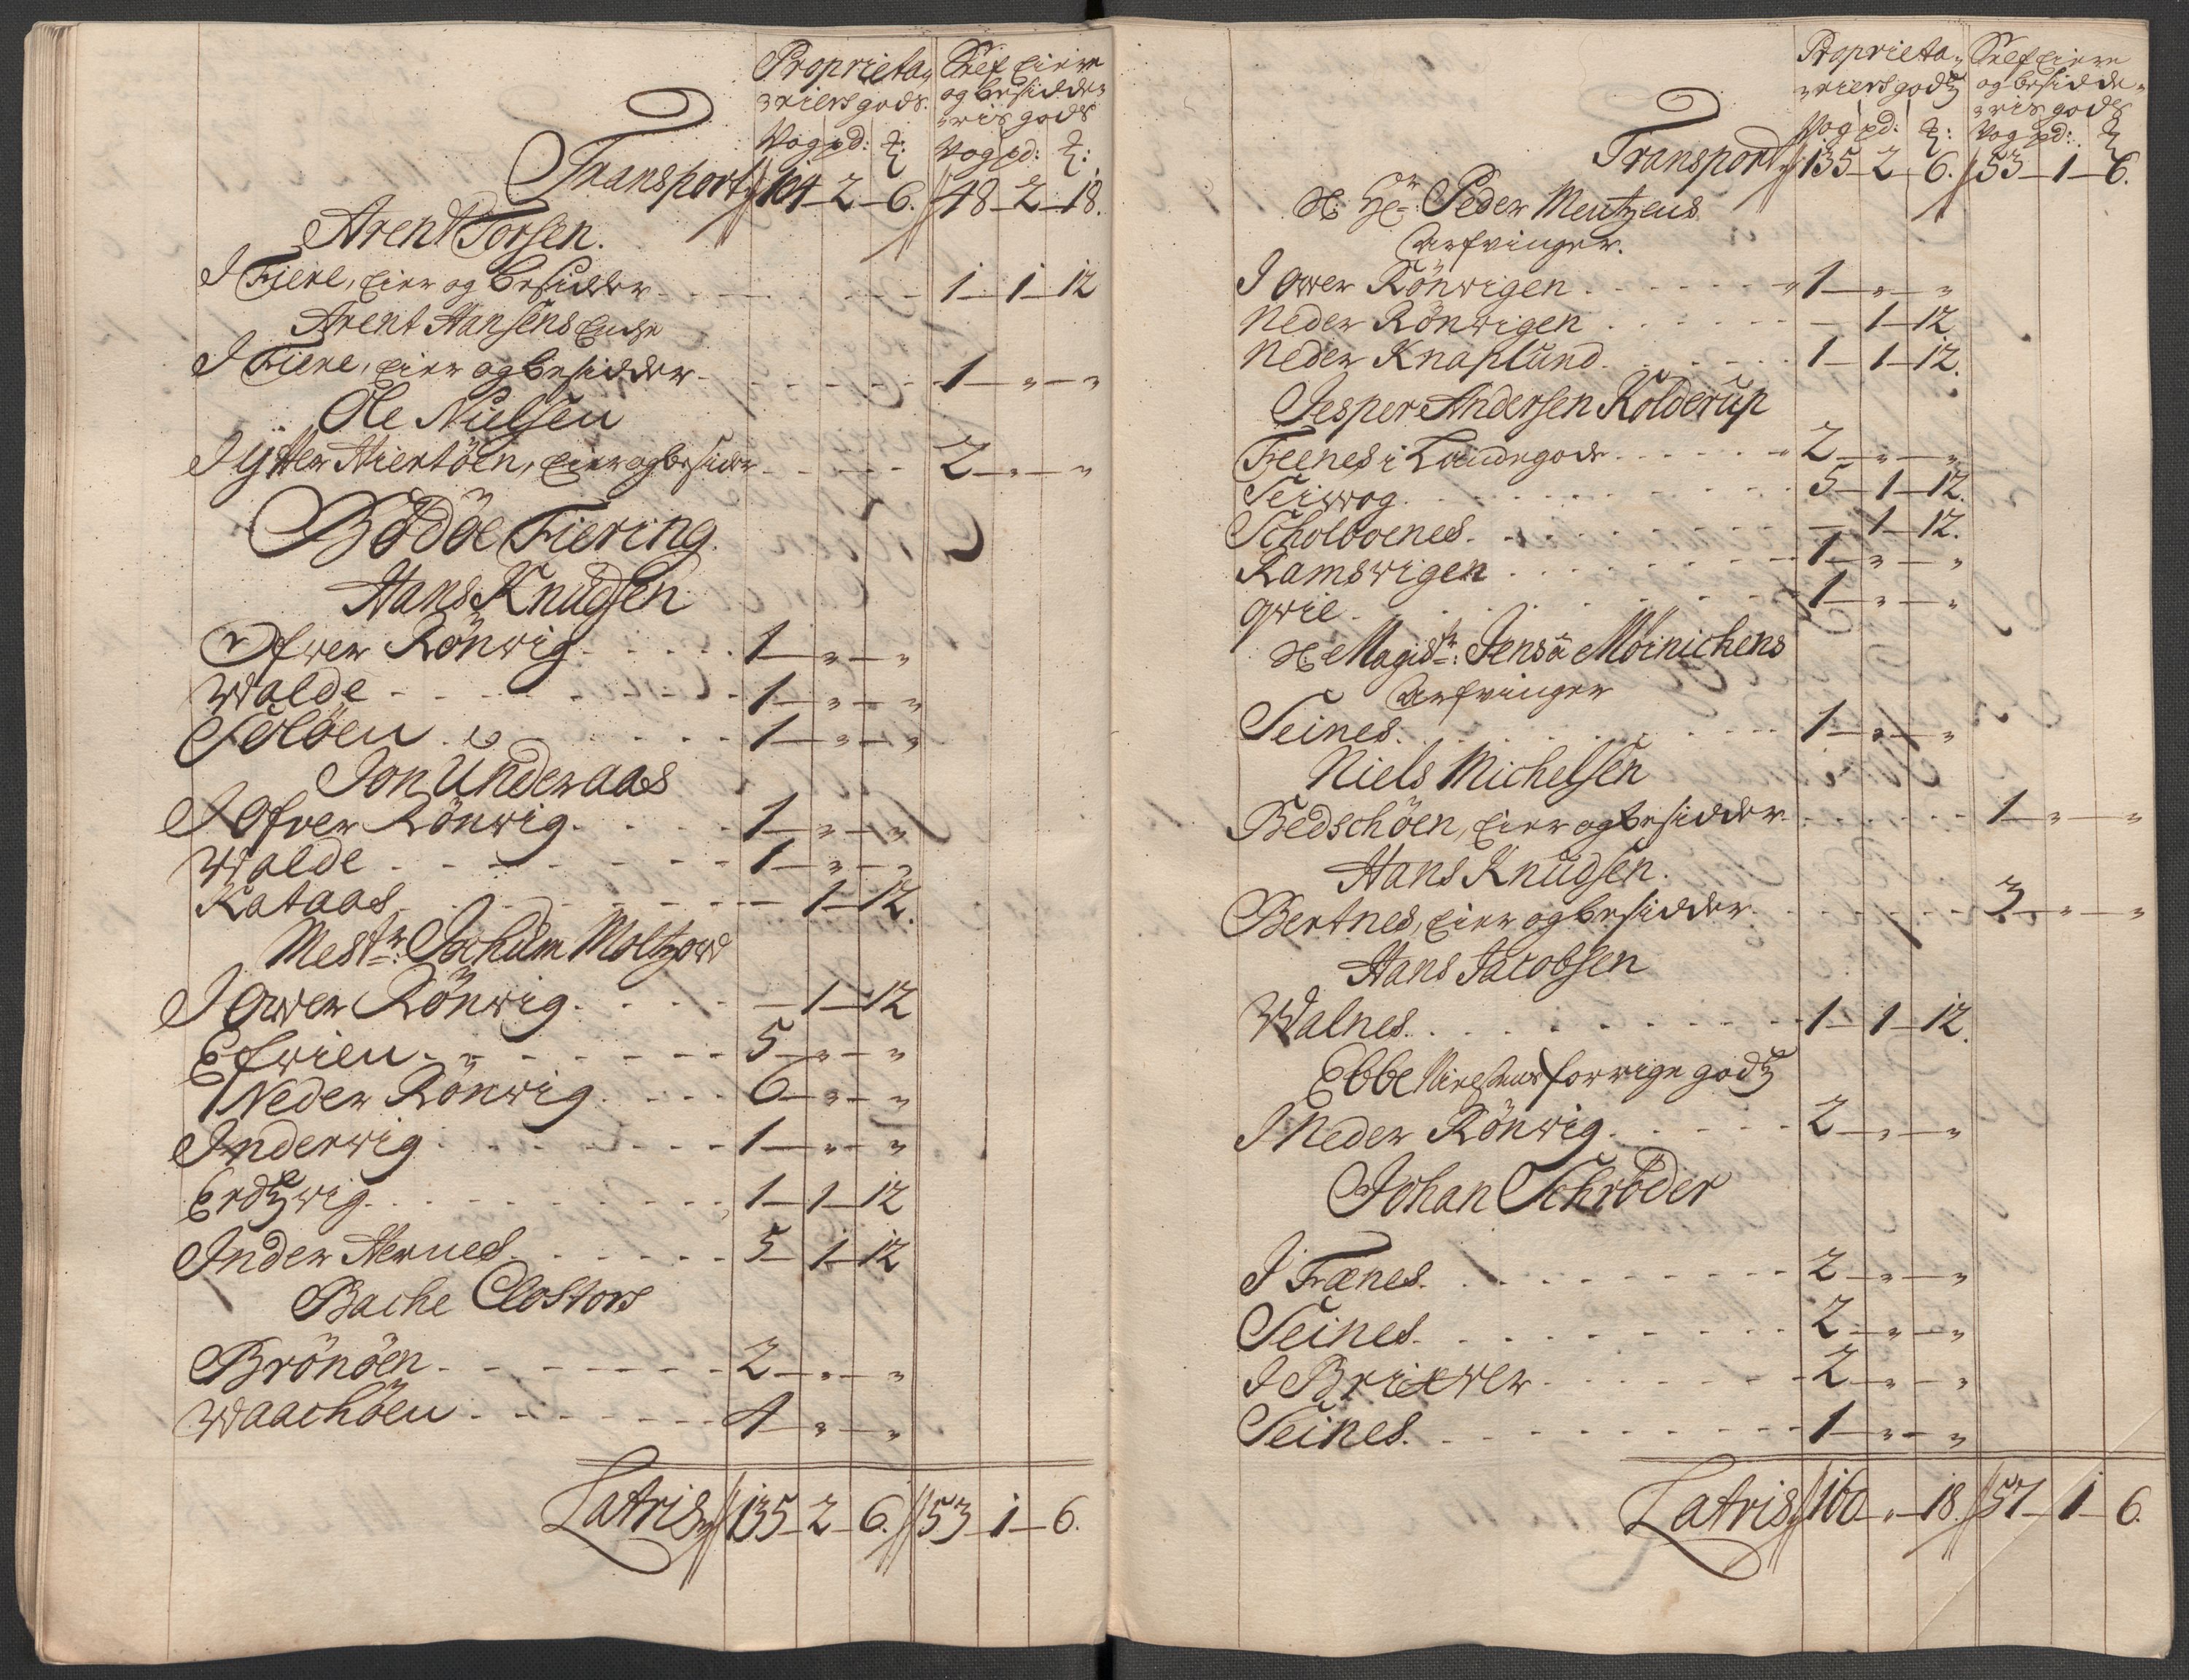 Proprieta- Self Eiere
-riers gods. og besidde-
-ris gods
Vog pd: ℔: Vog pd: ℔:
Transport 104 - 2 - 6. 48 - 2 - 18.
Arent Torsen.
I Fiere, Eier og besidder - - - 1 - 1 - 12
Arent Hansens Encke
I Fiere, Eier og besidder - - - 1 - " - "
Ole Nielsen
I ÿtter Hiertöen, Eier og besider - - - 2 - " - "
Bödöe Fiering.
Hans Knudsen
Ofwer Rönwig - - - 1 - " - "
Walde - - - 1 - " - "
Söelöen - - - 1 - " - "
Jon Underaas
I Ofver Rönwig - - - 1 - " - "
Walde - - - 1 - " - "
Kataas - - - 1 - 12.
Mestr: Jochum Moltzow
I Ower Rönwig - - - 1 - 12
Efwien - - - 5 - " - "
Neder Rönwig - - - 6 - " - "
Inderwig - - - 1 - " - "
Erdtzwig - - - 1 - 1 - 12
Inder Hernes - - - 5 - 1 - 12
Bache Closters
Brönöen - - - 2 - " - "
Waachöen - - - 4 - " - "
Latris 135 - 2 - 6. 53 - 1 - 6.
Proprieta- Self Eiere
-riers godtz og besidde-
-ris gods
Vog pd: ℔: Vog pd: ℔
Transport 135 - 2 - 6. 53 - 1 - 6.
Sl: Hr: Peder Mentzens
Arfvinger.
I Ower Rönwigen - - - 1 - " - "
Neder Rönwigen - - - 1 - 12
Neder Knaplund - - - 1 - 1 - 12.
Jesper Andersen Kolderup
Feenes i Landegode - - - 2 - " - "
Seiwog - - - 5 - 1 - 12.
Scholboenes - - - 1 - 12.
Ramswigen - - - 1 - " - "
Qvie - - - 1 - " - "
Sl: Magistr: Jens Möinichens
Arfvinger
Seines - - - 1 - " - "
Niels Michelsen
Bedschöen, Eier og besidder - - - 1 - " - "
Hans Knudsen.
Bertnes, Eier og besidder - - - 3 - " - "
Hans Jacobsen
Walnes - - - 1 - 1 - 12.
Ebbe forrige godtz
I Neder Rönwig - - - 2 - " - "
Johan Schröder
I Frænes - - - 2 - " - "
Seines - - - 2 - " - "
I Brixwer - - - 2 - " - "
Seines - - - 1 - " - "
Latris 160 - " - 18. 57 - 1 - 6.